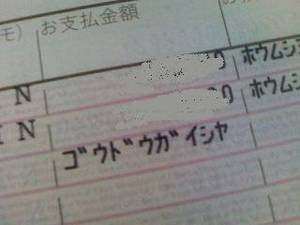 モ) お支払金額
N 0 ホウムシ
I N 0 ホウムシ
ゴウドウガイシヤ